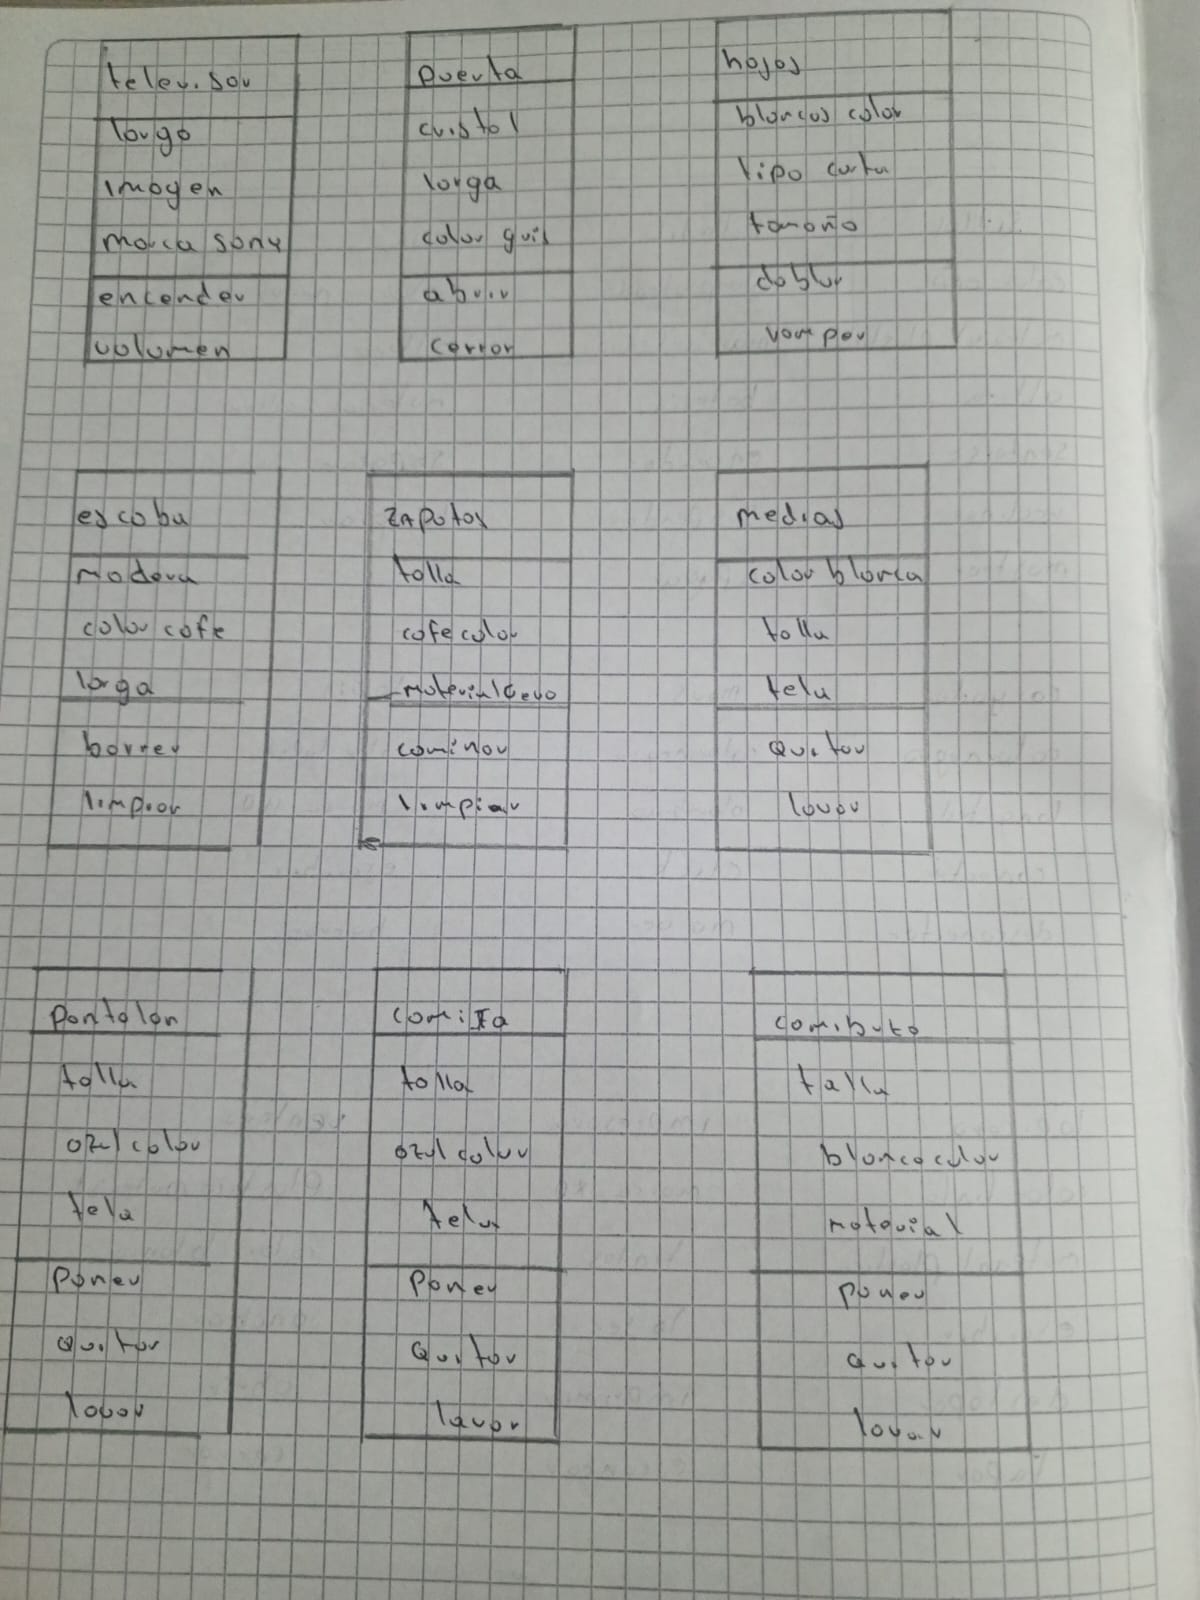 televisor
largo
imagen
marca sony
encender
volumen
puerta
cristal
larga
color gris
abrir
cerrar
hojas
blancas color
tipo carta
tamaño
doblar
romper
escoba
madera
color cafe
larga
barrer
limpiar
zapatos
talla
cafe color
material
caminar
limpiar
medias
color blanca
talla
tela
quitar
lavar
pantalon
talla
azul color
tela
poner
quitar
lavar
camisa
talla
azul color
tela
poner
quitar
lavar
talla
blanco color
material
poner
quitar
lavar